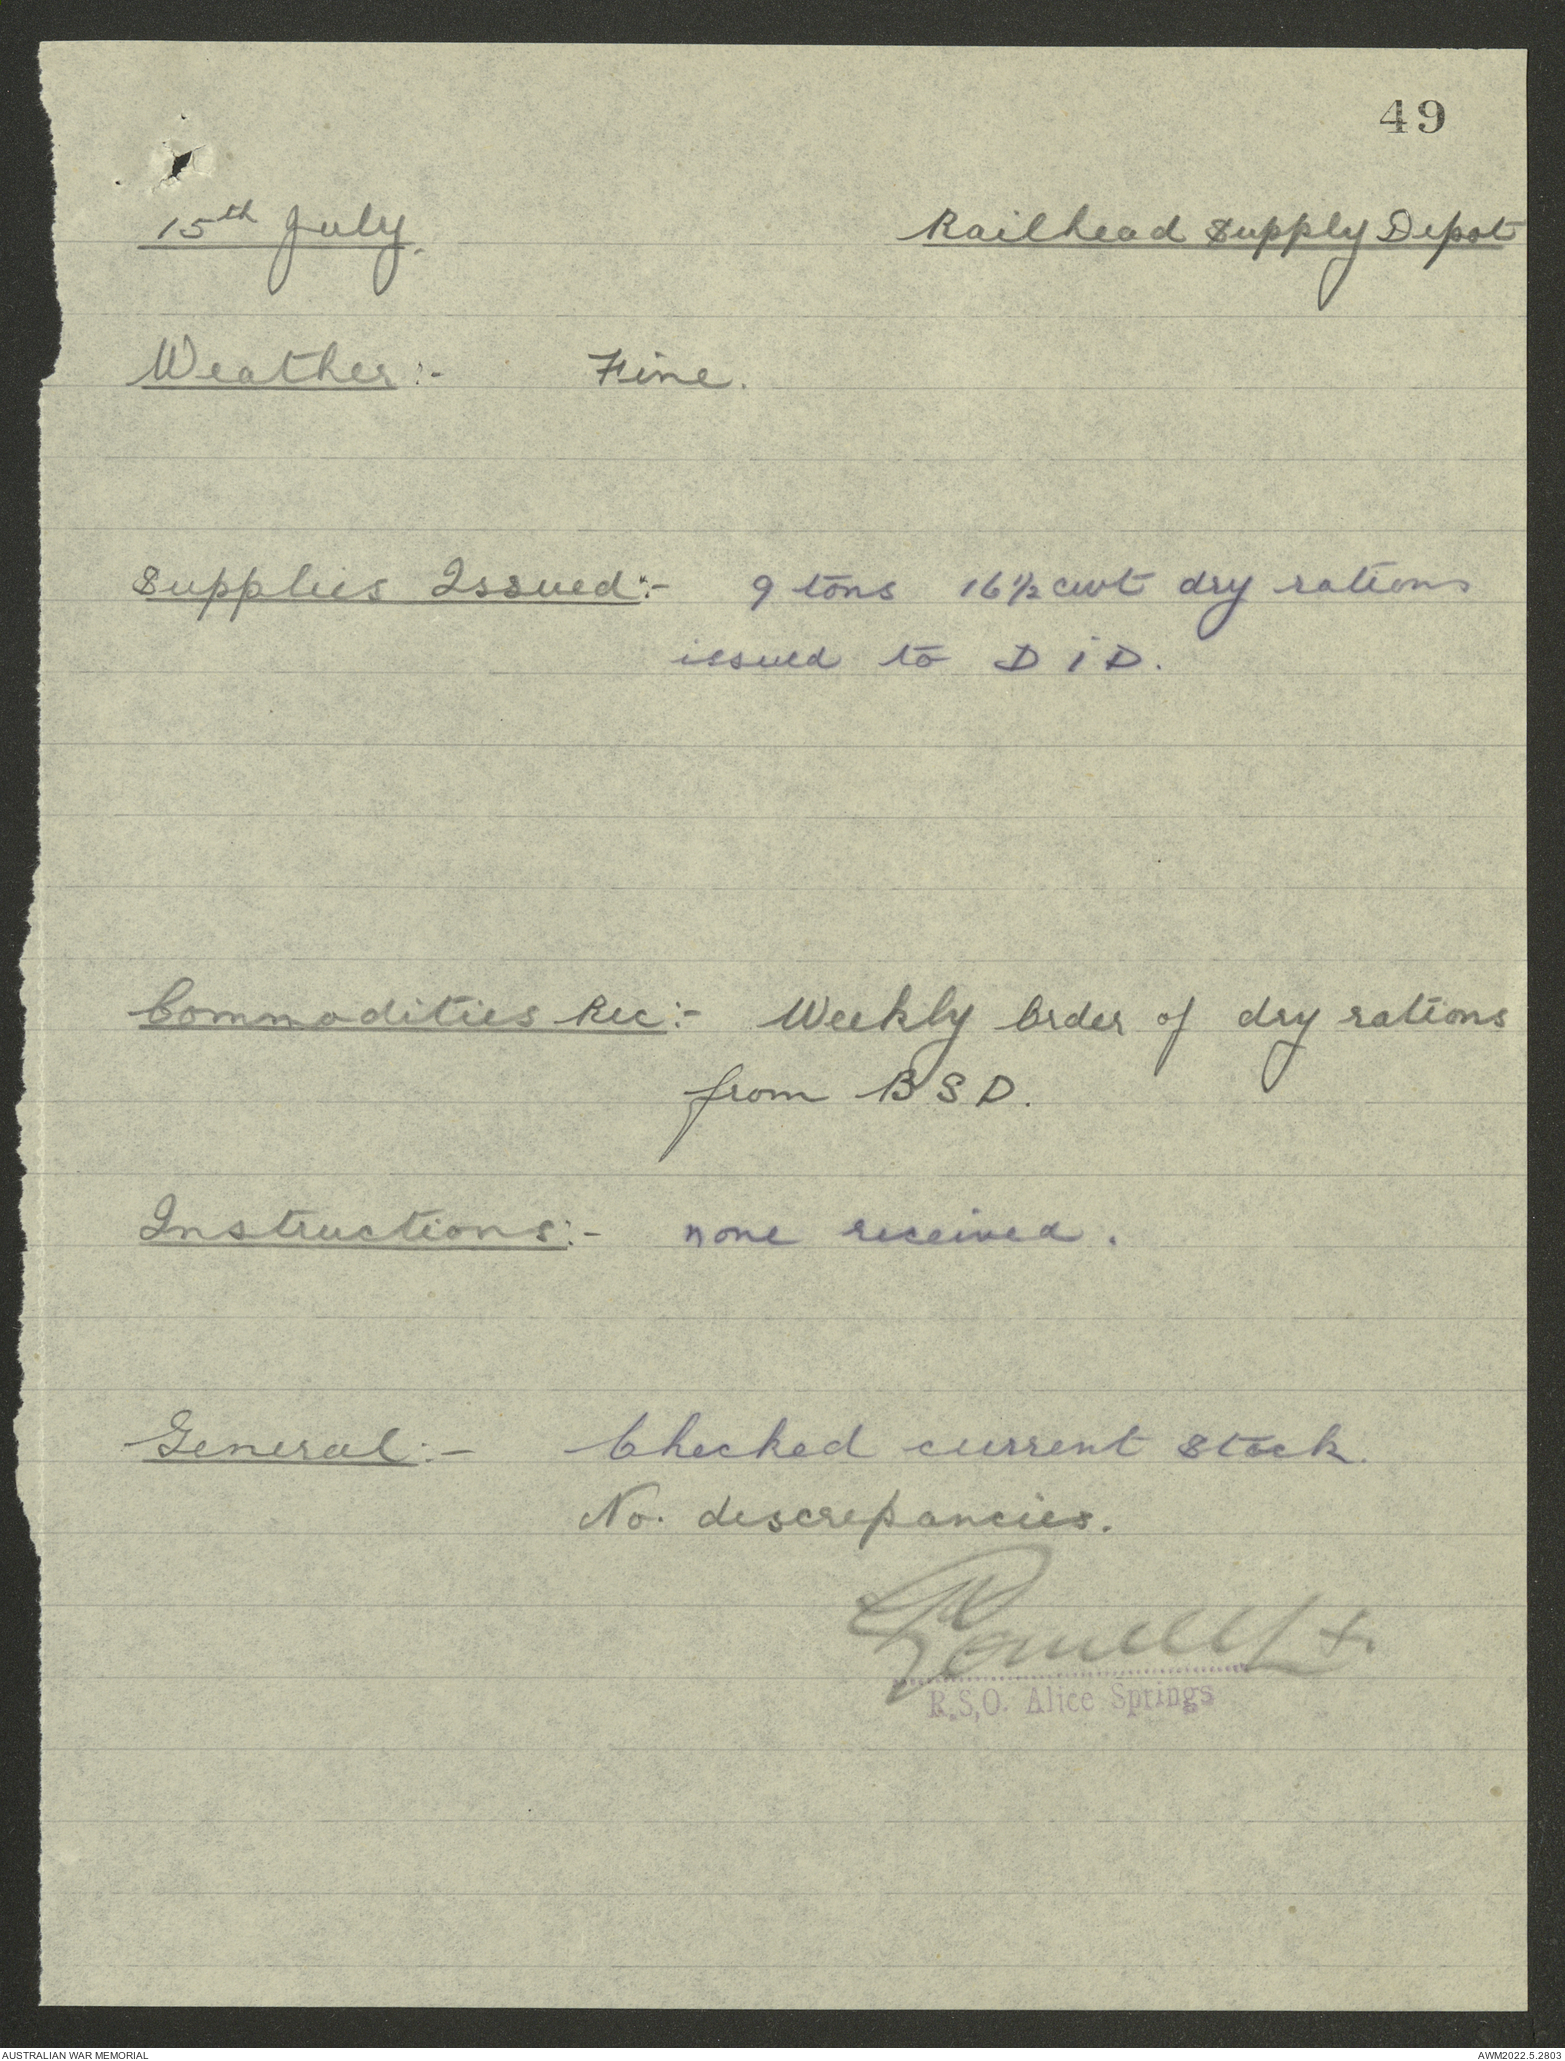 49
15th July. Railhead Supply Depot
Weather:- Fine.
Supplies Issued:- 9 tons 16½ cwt dry rations
issued to D I D.
Commodities Rec:- Weekly Order of dry rations
from B S D.
Instructions:- none received.
General:- Checked current stock.
No. discrepancies.
R.S.O. Alice Springs
AUSTRALIAN WAR MEMORIAL AWM2022.5.2803